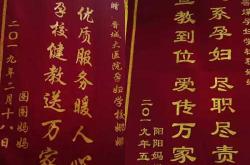 系孕妇 尽职尽责
宣教到位 爱传万家
阳阳妈
二〇一九年五
赠 晋城大医院孕妇学校
优质服务暖人心
孕校健教送万家
图图妈妈
二〇一九年二月十八日